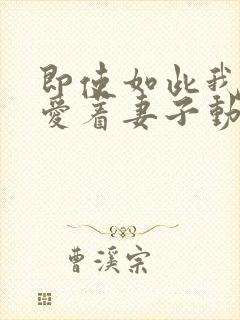 即使如此我
愛着妻子動
曹溪宗